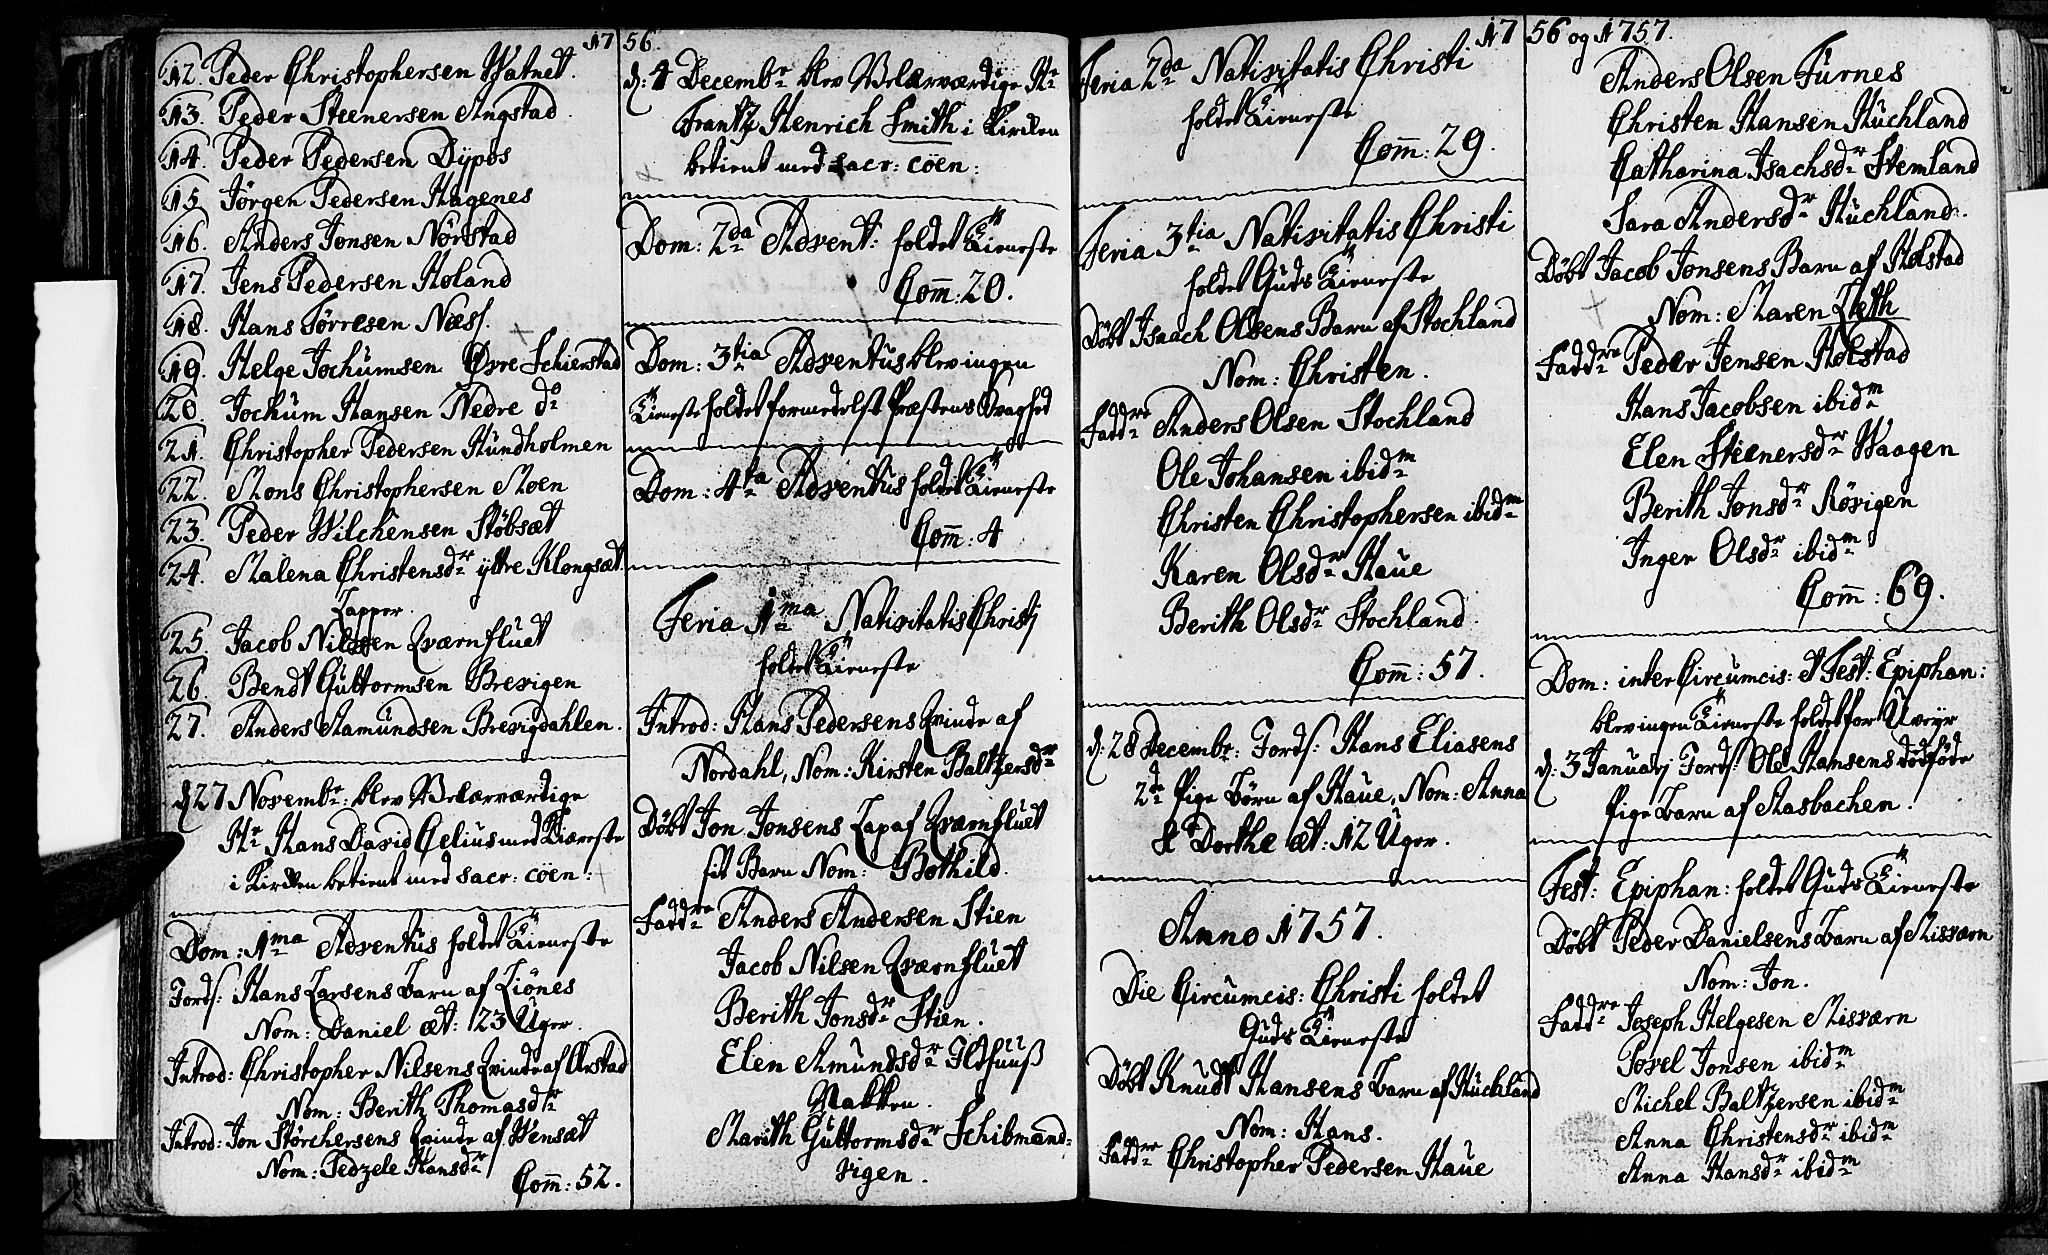 17 56.
12. Peder Christophersen Watnet.
13. Peder Steenersen Angstad
14. Peder Pedersen Dÿpos
15. Jörgen Pedersen Hagenes
16. Anders Jonsen Nörstad
17. Jens Pedersen Holand
18. Hans Törresen Næss.
19. Helge Jochumsen Øvre Schierstad
20. Jochum Hansen Nedre do
21. Christopher Pedersen Hundholmen
22. Mons Christophersen Moen
23. Peder Wilchensen Stöbsæt
24. Malena Christensdr ÿtre Klongsæt
Lapper.
25. Jacob Nilssen Qværnfluet
26. Bendt Guttormsen Brevigen
27. Anders Aamundsen Brevigdahlen.
d 27 Novembr: blev Velærværdige
Hr Hans David Celius med Kiæreste
i Kircken betient med sacr: cöen:
Dom: 1ma Adventus holdet Tieneste
Jords: Hans Larsens Barn af Liönes
Nom: Daniel æt: 23 Uger.
Introd: Christopher Nilsens Qvinde af Urstad
Nom: Berith Thomasdr
Introd: Jon Störchersens Qvinde af Wensæt
Nom: Pedzele Hansdr
Com̄: 52.
d: 4 Decembr blev Velærværdige Hr
Frantz Henrich Smith i Kircken
betient med sacr: cöen:
Dom: 2da Advent: holdet Tieneste
Com̄: 20.
Dom: 3tia Adventus blev ingen
Tieneste holdet formedelst Præstens Svaghed
Dom: 4ta Adventus holdet Tieneste
Com̄: 4
Feria 1ma Nativitatis Christj
holdet Tieneste
Introd: Hans Pedersens Qvinde af
Nordahl, Nom: Kirsten Baltzersdr
Döbt Jon Jonsens Lap af Qværnfluet
sit Barn Nom: Bothild.
Faddre Anders Andersen Stien
Jacob Nilsen Qværnfluet
Berith Jonsdr Stien.
Elen Amundsdr Ildhuuß
Nakken.
Marith Guttormsdr Schibmand-
vigen.
17 56 og 1757.
Feria 2da Nativitatis Christi
holdet Tieneste
Com̄: 29.
Feria 3tia Nativitatis Christi
holdet Guds Tieneste
Döbt Isaach Olsens Barn af Stochland
Nom: Christen.
Faddre Anders Olsen Stochland
Ole Johansen ibidm
Christen Christophersen ibidm
Karen Olsdr Haue
Berith Olsdr Stochland.
Com̄: 57.
d: 28 Decembr: Jords: Hans Eliasens
2de Pige Börn af Haue, Nom: Anna
& Dorthe æt: 12 Uger.
Anno 1757.
Die Circumcis: Christi holdet
Guds Tieneste
Döbt Knudt Hansens Barn af Huchland
Nom: Hans.
Faddre Christopher Pedersen Haue
Anders Olsen Furnes
Christen Hansen Huchland
Catharina Isachsdr Stemland
Sara Andersdr Huchland.
Döbt Jacob Jonsens Barn af Holstad
Nom: Maren Zleth
Faddre Peder Jensen Holstad
Hans Jacobsen ibidm
Elen Steenersdr Waagen
Berith Jonsdr Rövigen
Inger Olsdr ibidm
Com̄: 69.
Dom: inter Circumcis: et Fest: Epiphan:
blev ingen Tieneste holdet for Uveyr
d: 3 Januarj Jords: Ole Hansens dödföde
Pige Barn af Aasbachen.
Fest: Epiphan: holdet Guds Tieneste
Döbt Peder Danielsens Barn af Misværn
Nom: Jon.
Faddre Joseph Helgesen Misværn
Povel Jonsen ibidm
Michel Baltzersen ibidm
Anna Christensdr ibidm
Anna Hansdr ibidm